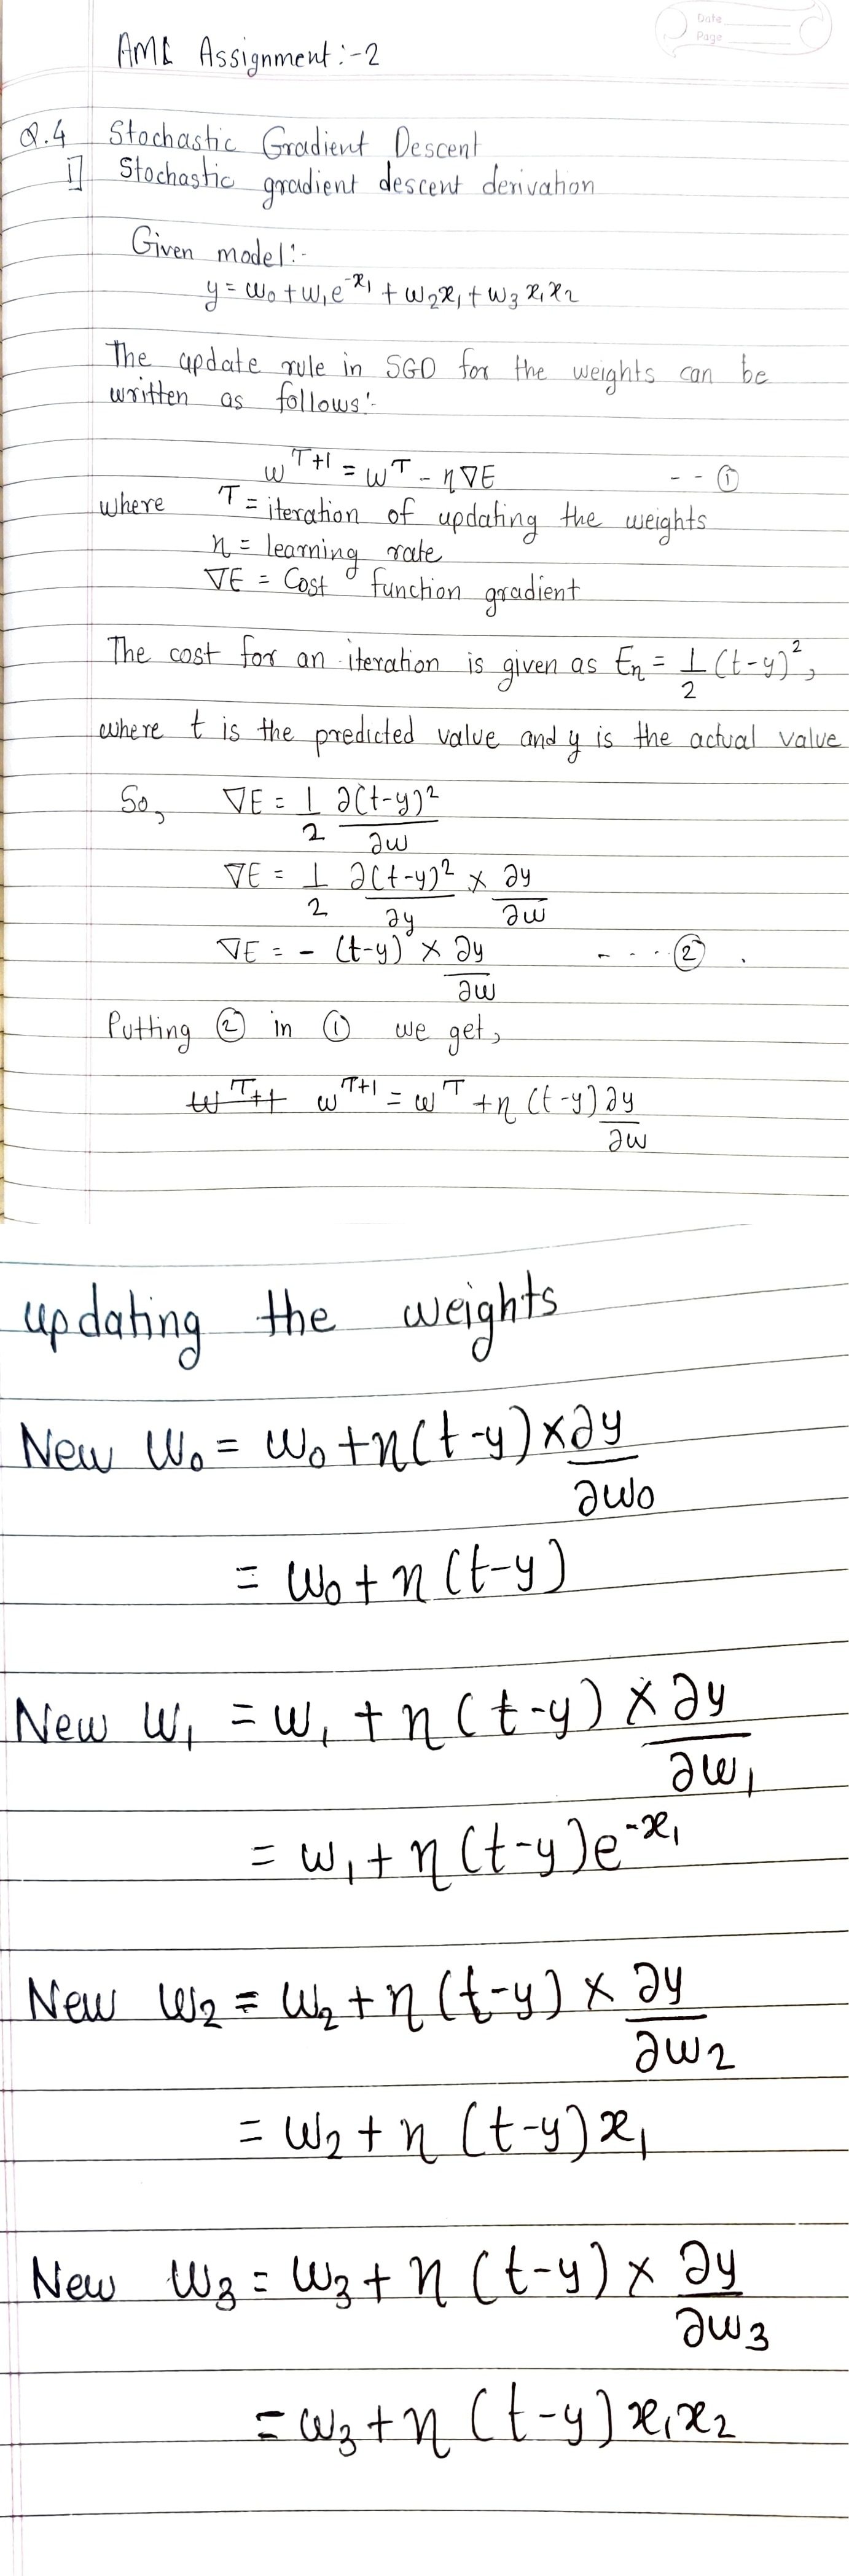 Date
Page
AML Assignment:-2
Q.4 Stochastic Gradient Descent
i] Stochastic gradient descent derivation
Given model:-
y = w₀ + w₁e^(-x₁) + w₂x₁ + w₃x₁x₂
The update rule in SGD for the weights can be
written as follows:-
w^(T+1) = w^T - η∇E -- ①
where T = iteration of updating the weights
η = learning rate
∇E = Cost function gradient
The cost for an iteration is given as Eₙ = 1/2 (t-y)²,
where t is the predicted value and y is the actual value
So, ∇E = 1/2 ∂(t-y)²/∂w
∇E = 1/2 ∂(t-y)²/∂y × ∂y/∂w
∇E = - (t-y) × ∂y/∂w ---- ②
Putting ② in ① we get,
w^(T+1) = w^T + η (t-y) ∂y/∂w
updating the weights
New w₀ = w₀ + η(t-y) × ∂y/∂w₀
= w₀ + η (t-y)
New w₁ = w₁ + η (t-y) × ∂y/∂w₁
= w₁ + η (t-y)e^(-x₁)
New w₂ = w₂ + η (t-y) × ∂y/∂w₂
= w₂ + η (t-y) x₁
New w₃ = w₃ + η (t-y) × ∂y/∂w₃
= w₃ + η (t-y) x₁x₂